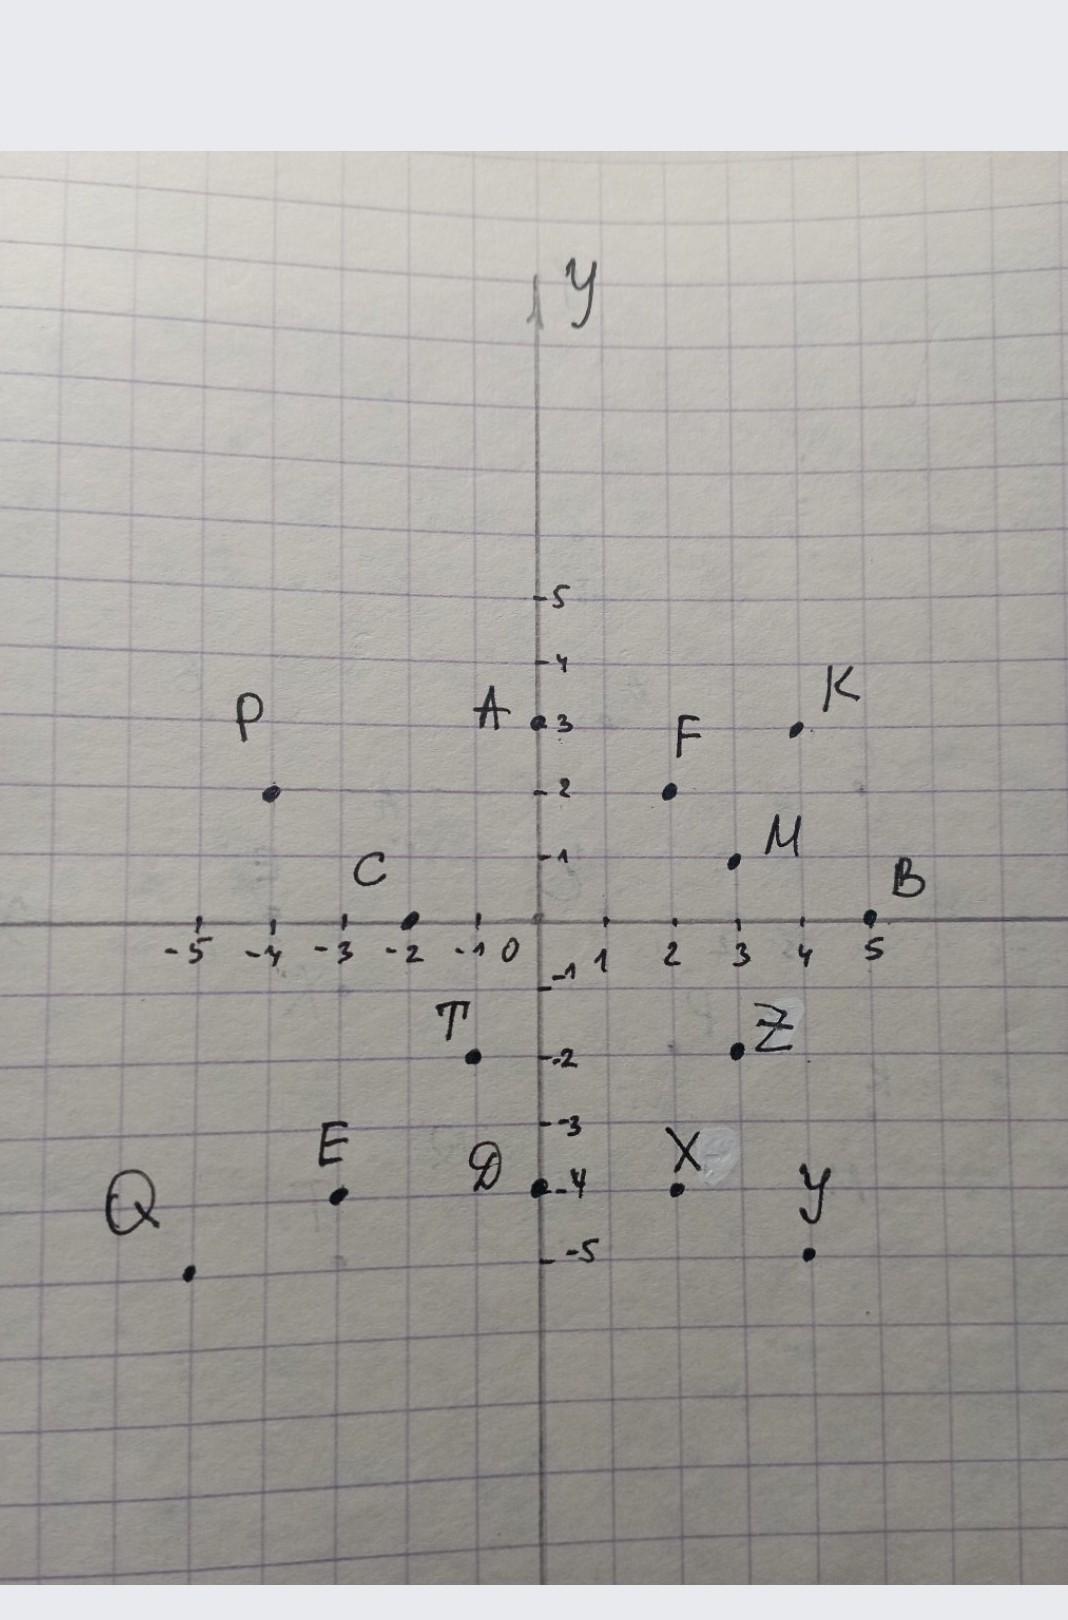 y
5
4
P A 3 F K
2
C 1 M B
-5 -4 -3 -2 -1 0 1 2 3 4 5
-1
T -2 Z
-3
Q E D -4 X y
-5